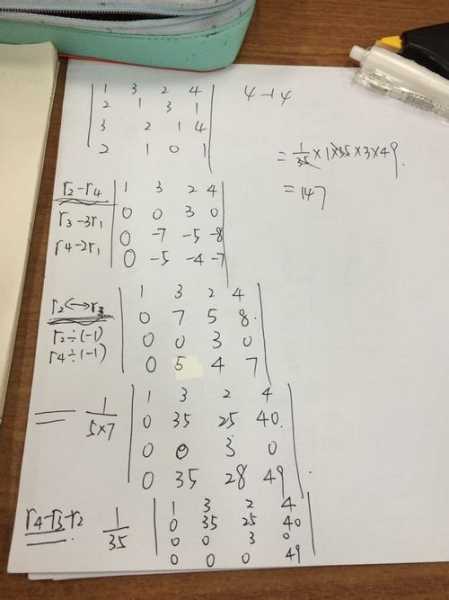 1 3 2 4
2 1 3 1
3 2 1 4
2 1 0 1
= 1/35 × 1 × 35 × 3 × 49.
= 147
r2-r4
r3-3r1
r4-2r1
1 3 2 4
0 0 3 0
0 -7 -5 -8
0 -5 -4 -7
r2↔r3
r2÷(-1)
r4÷(-1)
1 3 2 4
0 7 5 8.
0 0 3 0
0 5 4 7
= 1/5×7
1 3 2 4
0 35 25 40.
0 0 3 0
0 35 28 49
r4-r3-r2
1/35
1 3 2 4
0 35 25 40
0 0 3 0
0 0 0 49